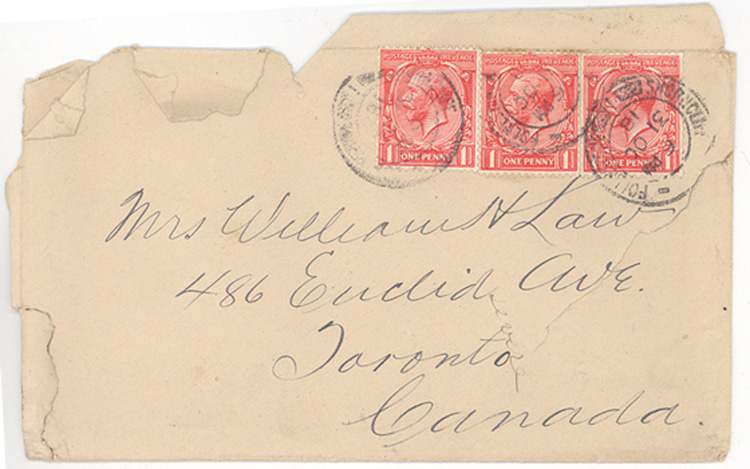 POSTAGE REVENUE POSTAGE REVENUE POSTAGE REVENUE
1 ONE PENNY 1 1 ONE PENNY 1 1 ONE PENNY 1
Mrs William H Law
486 Euclid Ave.
Toronto
Canada.